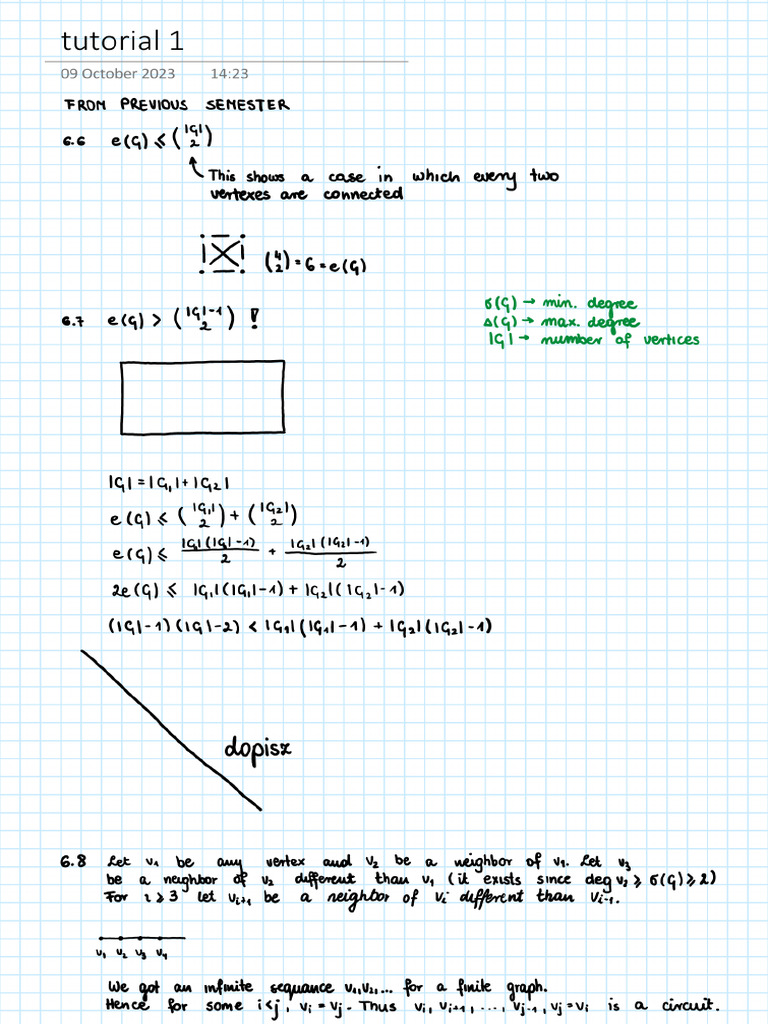 tutorial 1
09 October 2023 14:23
FROM PREVIOUS SEMESTER
6.6 e(G) ⩽ (|G| 2)
This shows a case in which every two
vertexes are connected
(4 2) = 6 = e(G)
6.7 e(G) > (|G|-1 2) !
σ(G) → min. degree
Δ(G) → max. degree
|G| → number of vertices
|G| = |G₁| + |G₂|
e(G) ⩽ (|G₁| 2) + (|G₂| 2)
e(G) ⩽ |G₁|(|G₁|-1)/2 + |G₂|(|G₂|-1)/2
2e(G) ⩽ |G₁|(|G₁|-1) + |G₂|(|G₂|-1)
(|G|-1)(|G|-2) < |G₁|(|G₁|-1) + |G₂|(|G₂|-1)
dopisz
6.8 Let v₁ be any vertex and v₂ be a neighbor of v₁. Let v₃
be a neighbor of v₂ different than v₁ (it exists since deg v₂ ⩾ σ(G) ⩾ 2)
For i ⩾ 3 let vᵢ₊₁ be a neighbor of vᵢ different than vᵢ₋₁.
v₁ v₂ v₃ v₄
We got an infinite sequance v₁,v₂,... for a finite graph.
Hence for some i<j, vᵢ = vⱼ. Thus vᵢ, vᵢ₊₁, ..., vⱼ₋₁, vⱼ=vᵢ is a circuit.